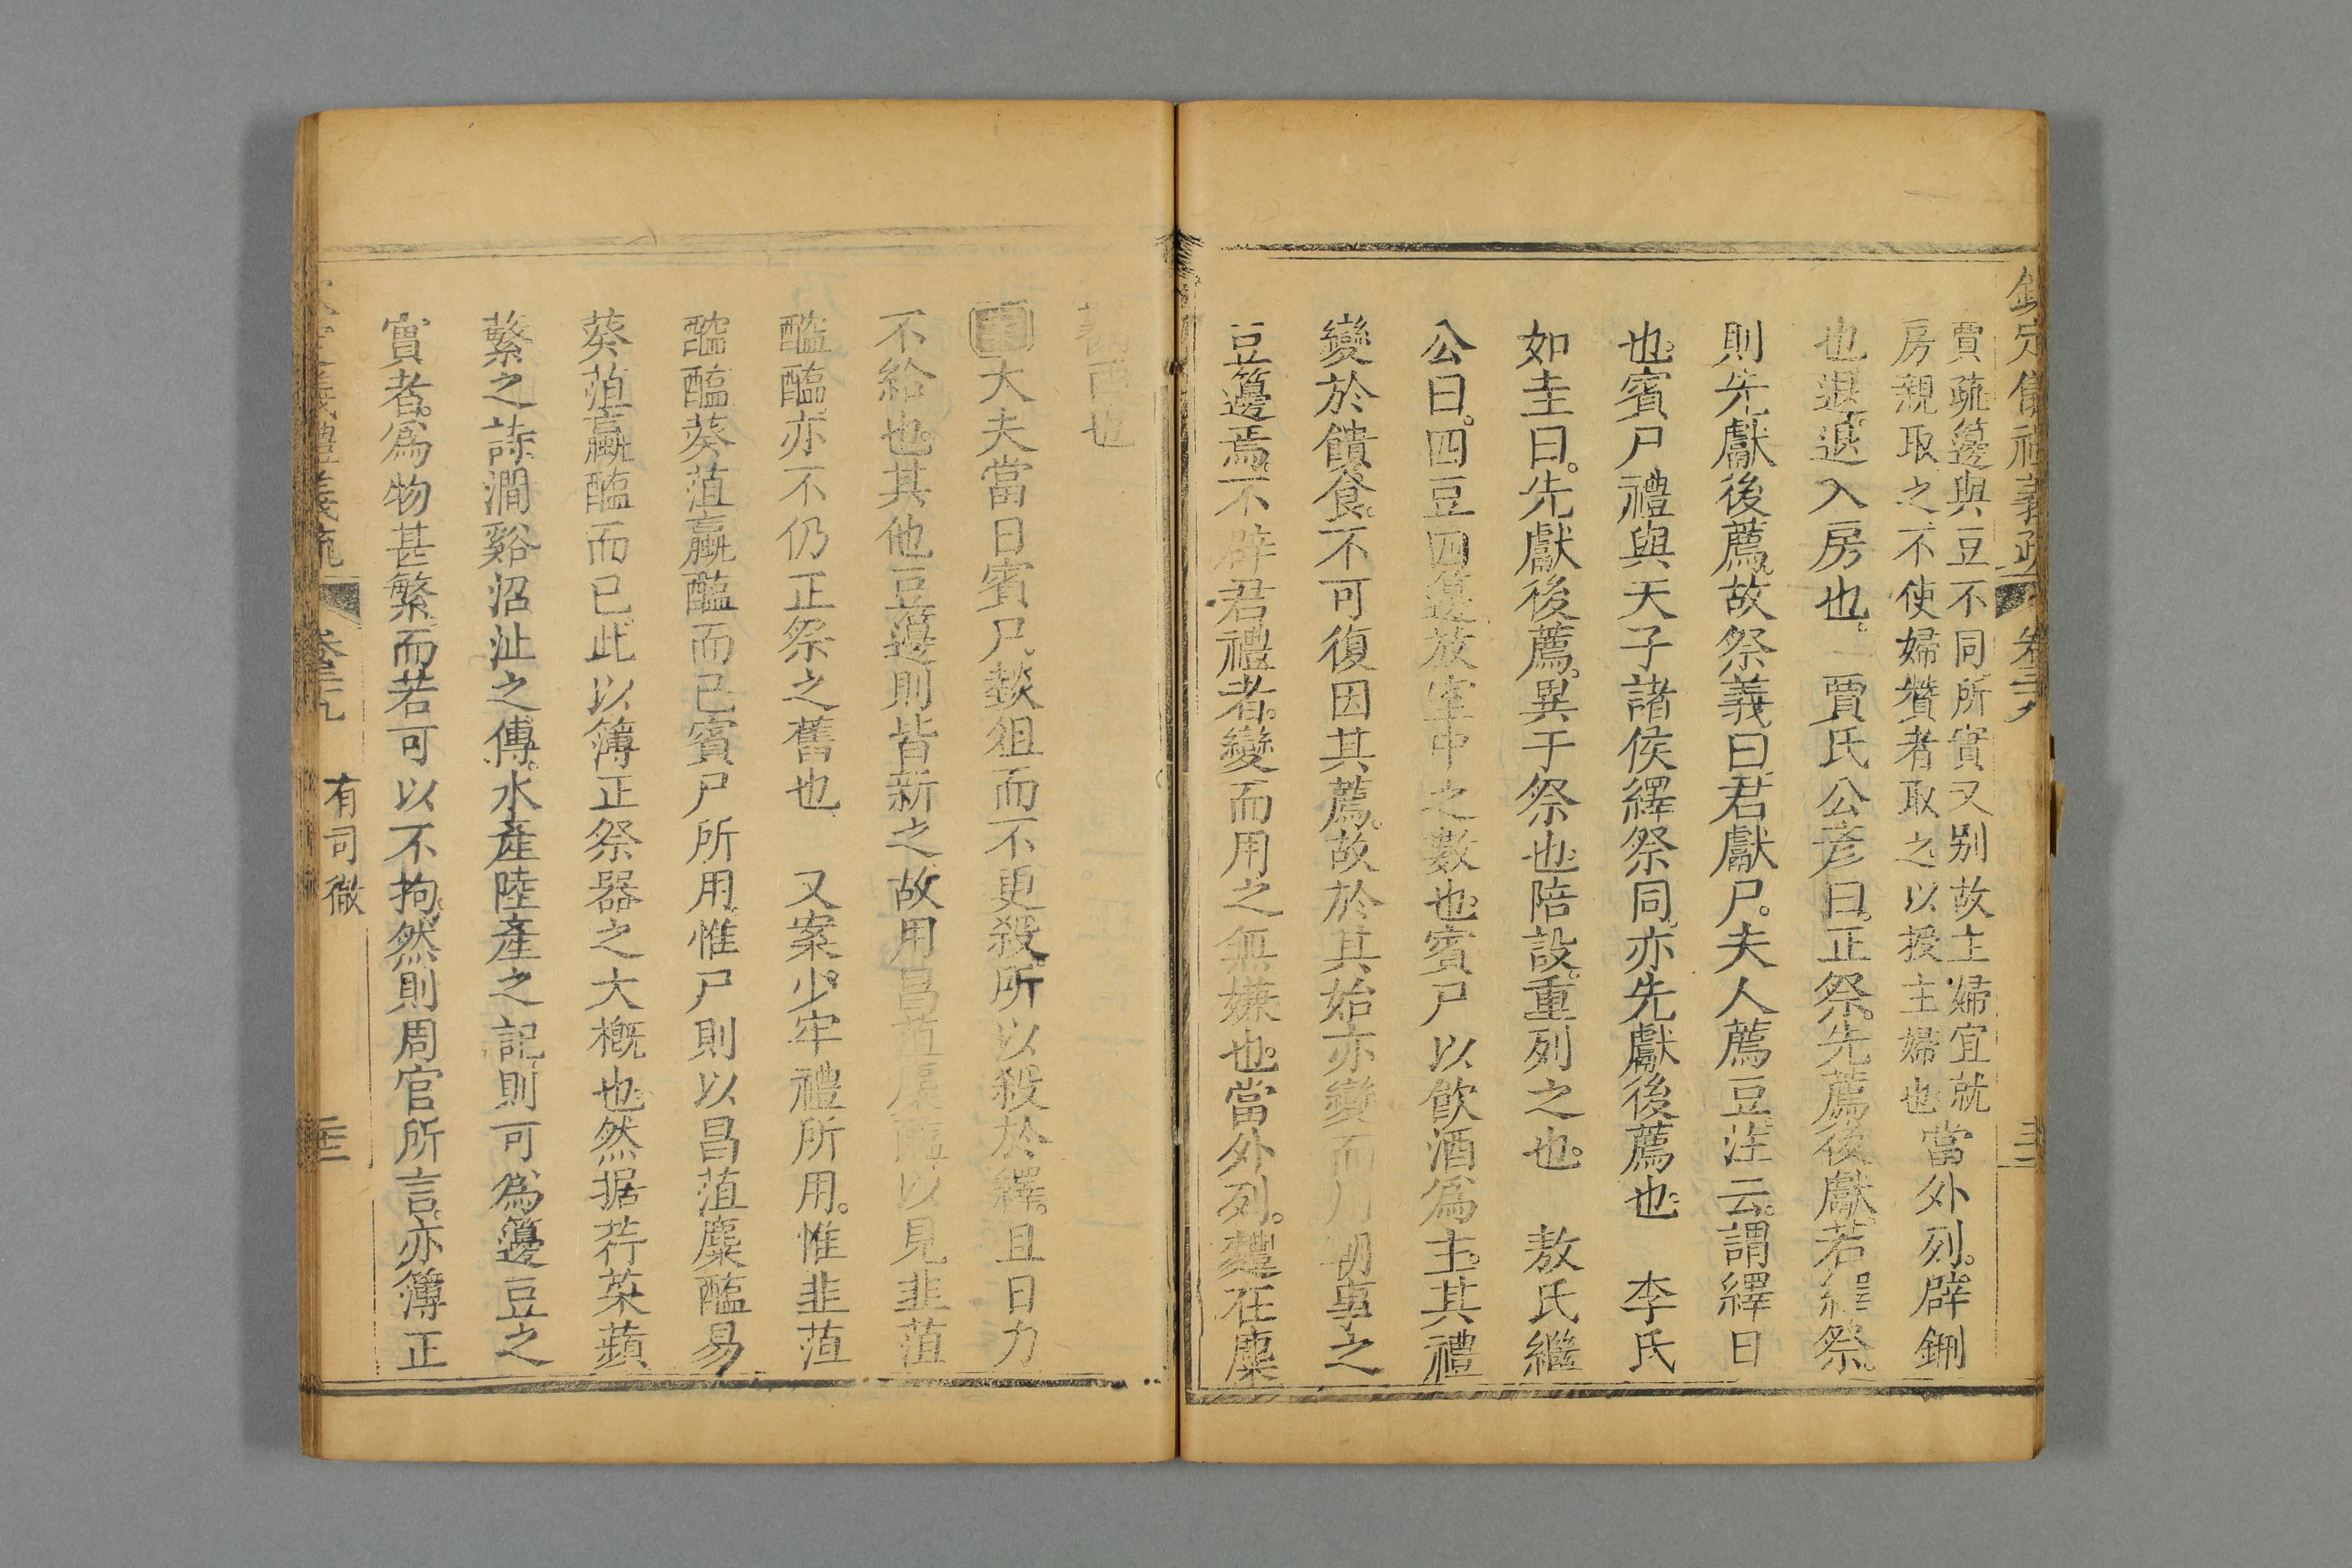 賈疏籩與豆不同所實又别故主婦宜就
房親取之不使婦贊者取之以授主婦也
當外列辟鉶
也退退入房也　賈氏公彦曰正祭先薦後獻若繹祭
則先獻後薦故祭義曰君獻尸夫人薦豆注云謂繹日
也賓尸禮與天子諸侯繹祭同亦先獻後薦也　李氏
如圭曰先獻後薦異于祭也陪設重列之也　敖氏繼
公曰四豆四籩放牢中之數也賓尸以飮酒爲主其禮
變於饋食不可復因其薦故於其始亦變而用朝事之
豆籩焉不辟君禮者變而用之無嫌也當外列䵄在麋
西也
大夫當日賓尸燅俎而不更殺所以殺於繹且日力
不給也其他豆籩則皆新之故用昌菹麋臡以見韭菹
醓醢亦不仍正祭之舊也　又案少牢禮所用惟韭菹
醓醢葵菹蠃醢而已賓尸所用惟尸則以昌菹麋醢易
葵菹蠃醢而已此以簿正祭器之大概也然据荇菜蘋
蘩之詩澗谿沼沚之傳水產陸產之記則可爲籩豆之
實者爲物甚繁而若可以不拘然則周官所言亦簿正
卷三十九
有司徹